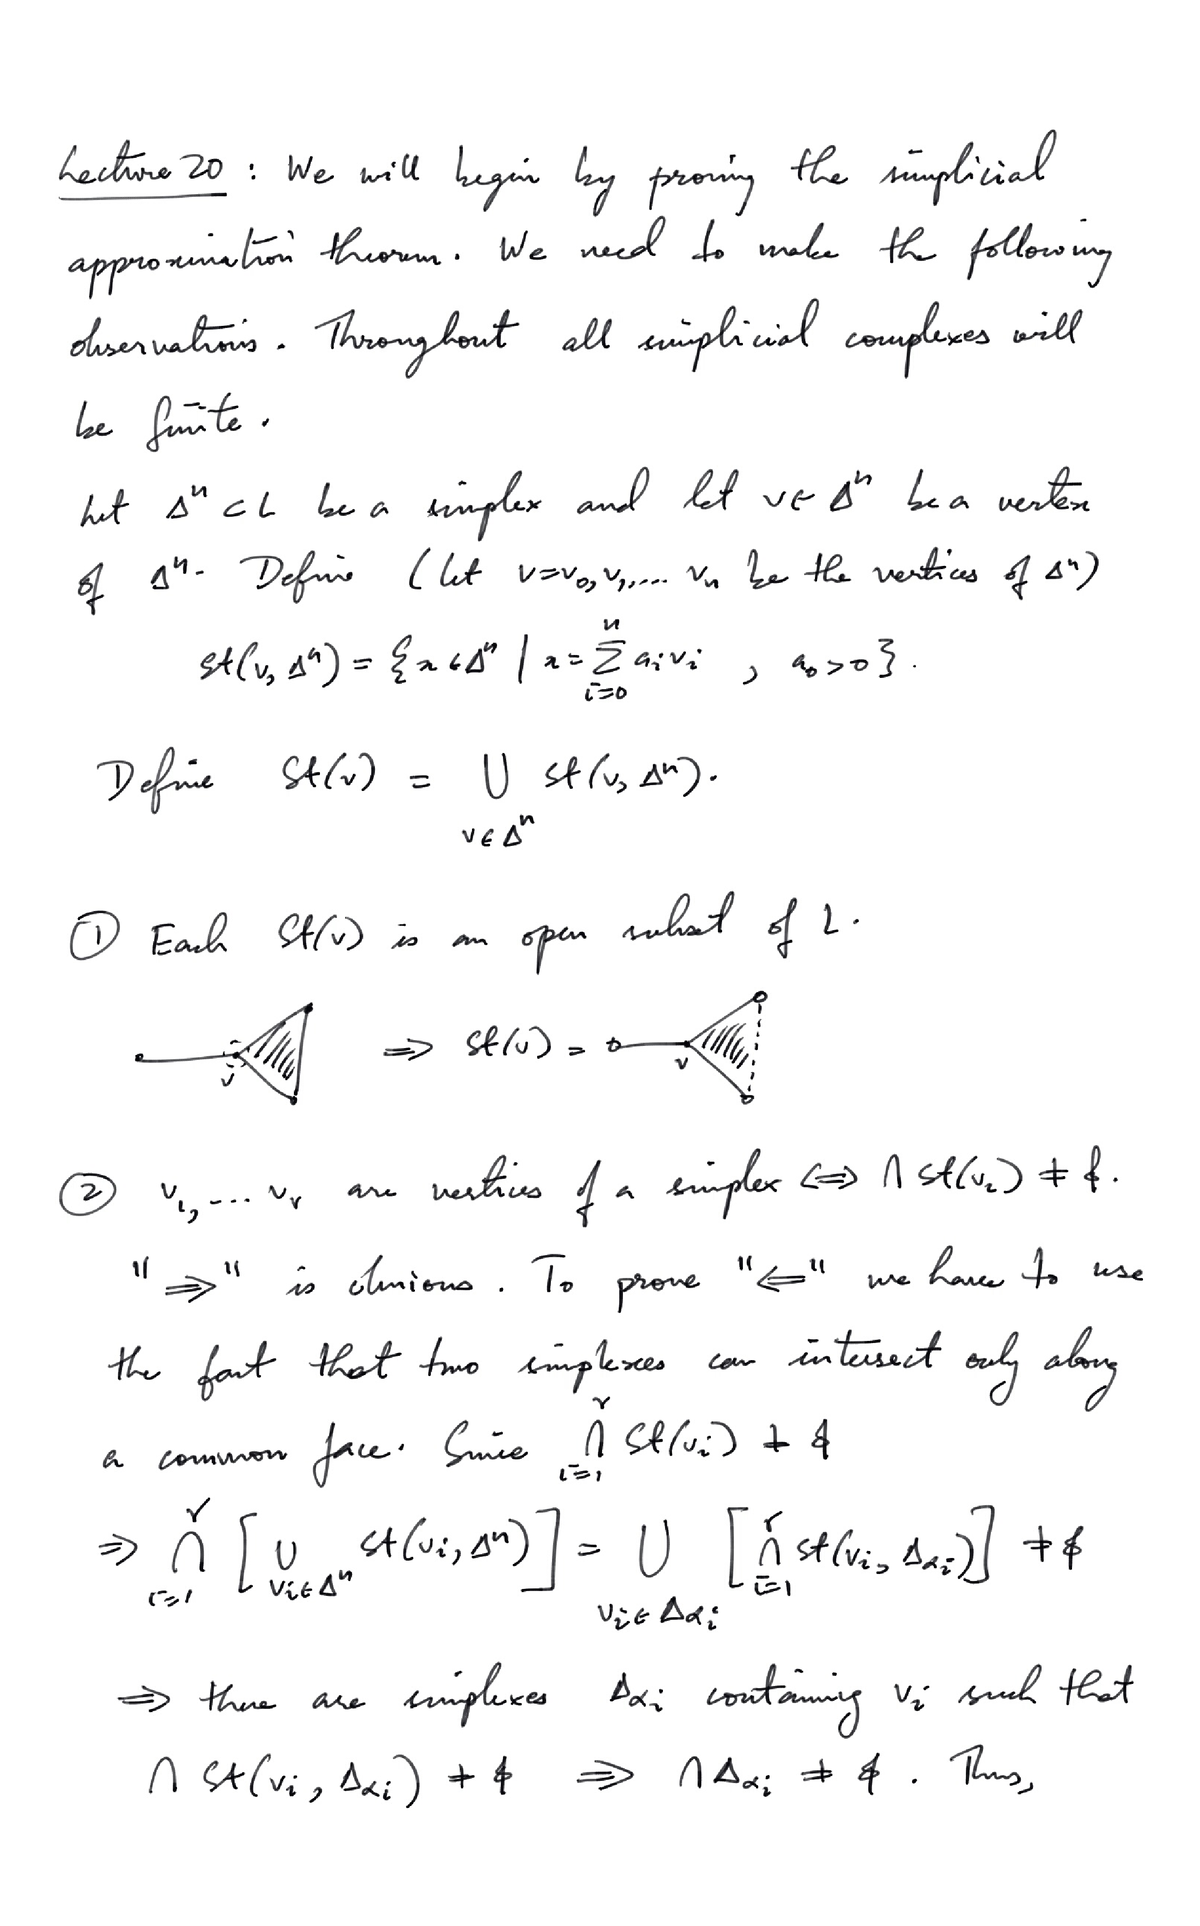 Lecture 20 : We will begin by proving the simplicial
approximation theorem. We need to make the following
observations. Throughout all simplicial complexes will
be finite.
Let Δⁿ ⊂ L be a simplex and let v ∈ Δⁿ be a vertex
of Δⁿ. Define (let v=v₀, v₁, ... vₙ be the vertices of Δⁿ)
st(v, Δⁿ) = {x ∈ Δⁿ | x = Σ_{i=0}^{n} aᵢvᵢ , a₀ > 0}.
Define St(v) = ∪_{v ∈ Δⁿ} st(v, Δⁿ).
① Each St(v) is an open subset of L.
v ⇒ St(v) = v
② v₁, ... vᵣ are vertices of a simplex ⟺ ∩ St(vᵢ) ≠ ∅.
"⇒" is obvious. To prove "⇐" we have to use
the fact that two simplexes can intersect only along
a common face. Since ∩_{i=1}^{r} St(vᵢ) ≠ ∅
⇒ ∩_{i=1}^{r} [∪_{vᵢ ∈ Δⁿ} st(vᵢ, Δⁿ)] = ∪_{vᵢ ∈ Δ_{αᵢ}} [∩_{i=1}^{r} st(vᵢ, Δ_{αᵢ})] ≠ ∅
⇒ there are simplexes Δ_{αᵢ} containing vᵢ such that
∩ St(vᵢ, Δ_{αᵢ}) ≠ ∅ ⇒ ∩ Δ_{αᵢ} ≠ ∅. Thus,